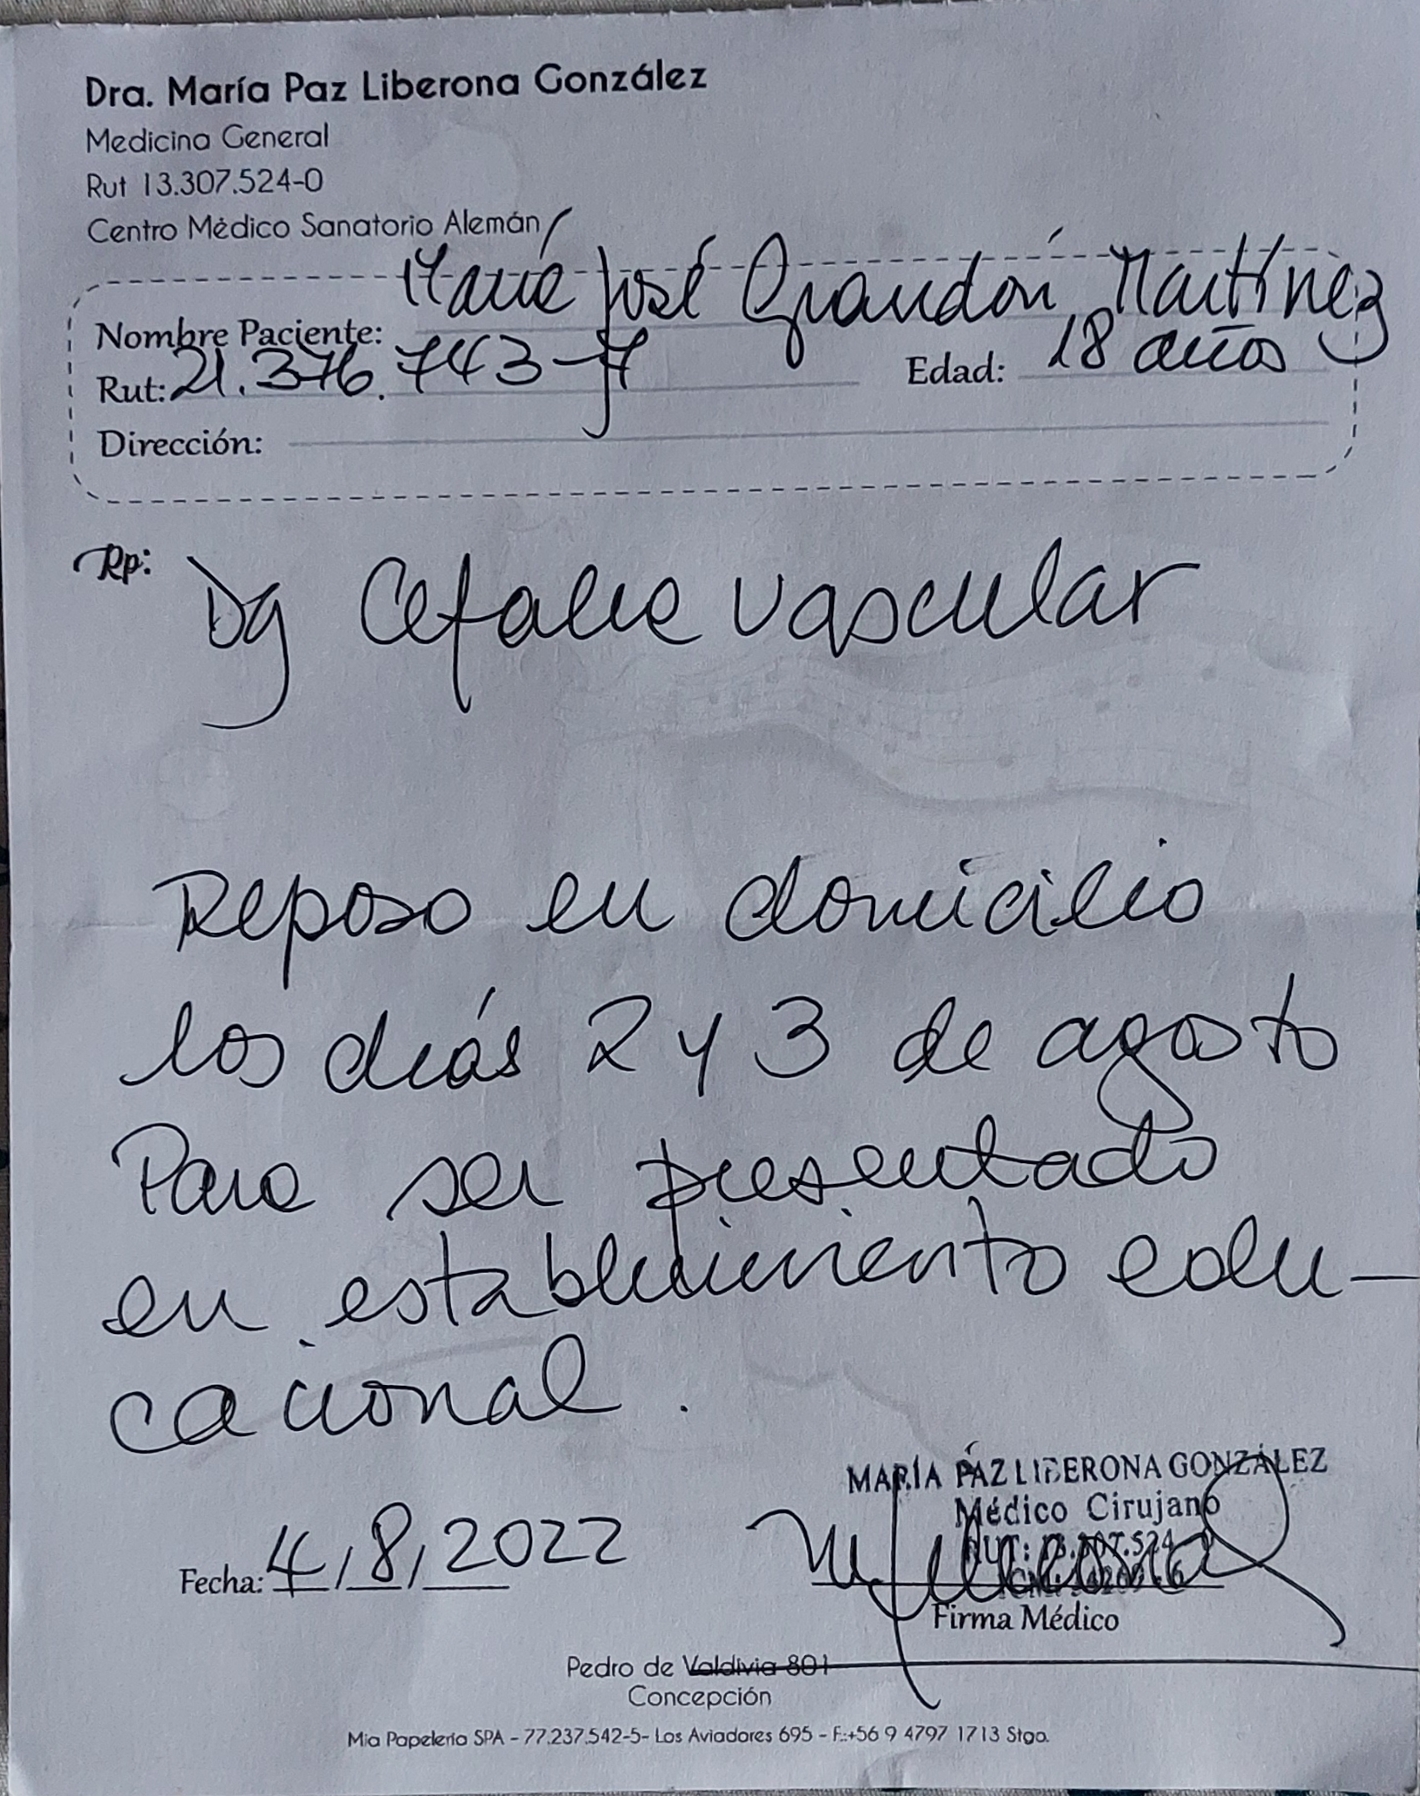 Dra. María Paz Liberona González
Medicina General
Rut 13.307.524-0
Centro Médico Sanatorio Alemán
Nombre Paciente: María José Grandón Martínez
Rut: 21.376.743-7 Edad: 18 años
Dirección:
Rp: Dg Cefalea vascular
Reposo en domicilio
los días 2 y 3 de agosto
Para ser presentado
en establecimiento edu-
cacional.
MARÍA PAZ LIBERONA GONZÁLEZ
Médico Cirujano
RUT: 13.307.524-0
Fecha: 4/8/2022
Firma Médico
Pedro de Valdivia 801
Concepción
Mia Papelería SPA - 77.237.542-5- Los Aviadores 695 - F.:+56 9 4797 1713 Stgo.